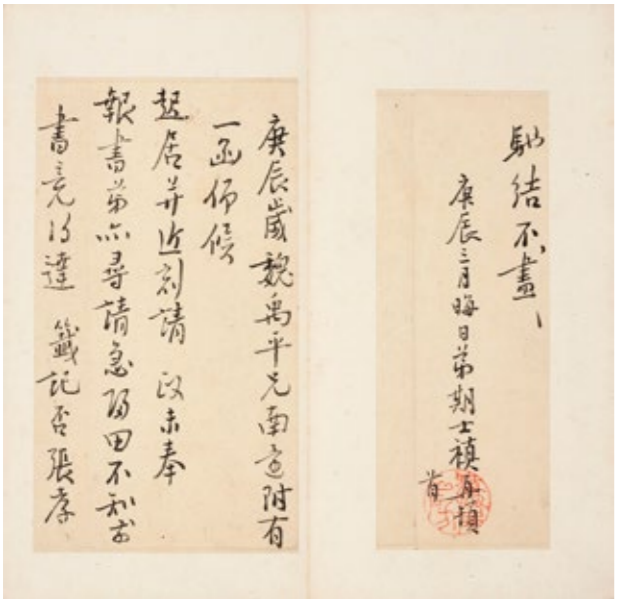 馳結不盡
庚辰三月晦日弟期士禛再頓
首
庚辰歲魏禹平兄南還附有
一函仰候
起居并近刻請 政未奉
報書弟亦尋請急歸田不知前
書竟得達 籤記否張孝